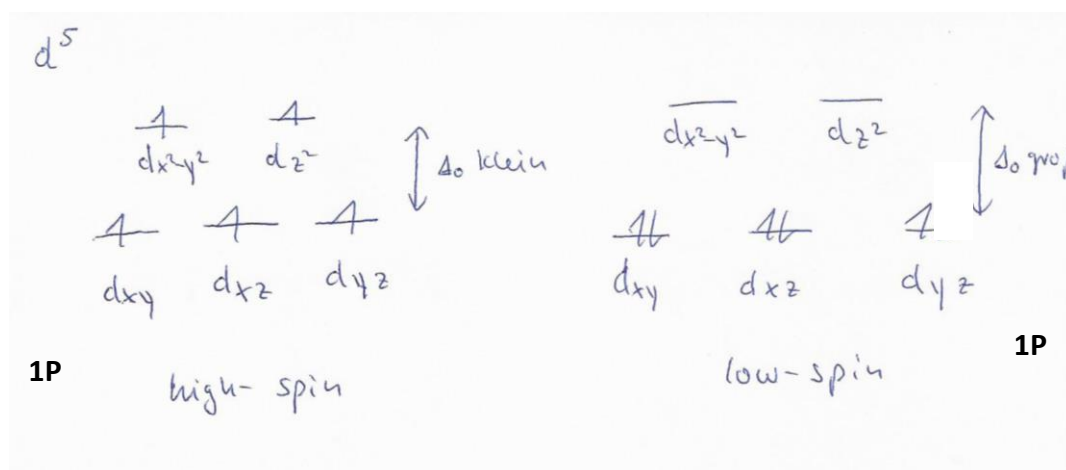 d⁵
dx²-y² dz² Δ₀ klein
dxy dxz dyz
1P
high-spin
dx²-y² dz² Δ₀
dxy dxz dyz
1P
low-spin